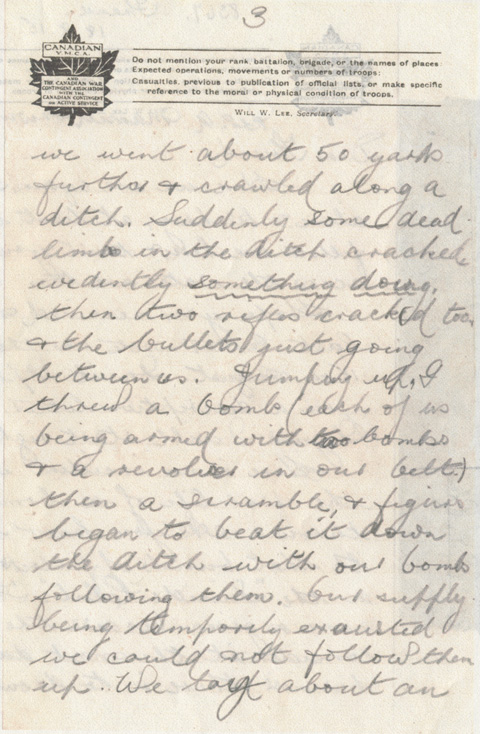 3
CANADIAN
Y.M.C.A.
AND
THE CANADIAN WAR
CONTINGENT ASSOCIATION
WITH THE
CANADIAN CONTINGENT
ON ACTIVE SERVICE
Do not mention your rank, battalion, brigade, or the names of places:
Expected operations, movements or numbers of troops:
Casualties, previous to publication of official lists, or make specific
reference to the moral or physical condition of troops.
WILL W. LEE, Secretary.
we went about 50 yards
further & crawled along a
ditch. Suddenly some dead
limbs in the ditch cracked,
evedently something doing,
then two rifles cracked too,
& the bullets just going
between us. Jumping up, I
threw a bomb (each of us
being armed with two bombs
& a revolver in our belt.)
then a scramble, & figures
began to beat it down
the ditch with our bombs
following them. Our supply
being temporily exausted
we could not follow them
up. We about an